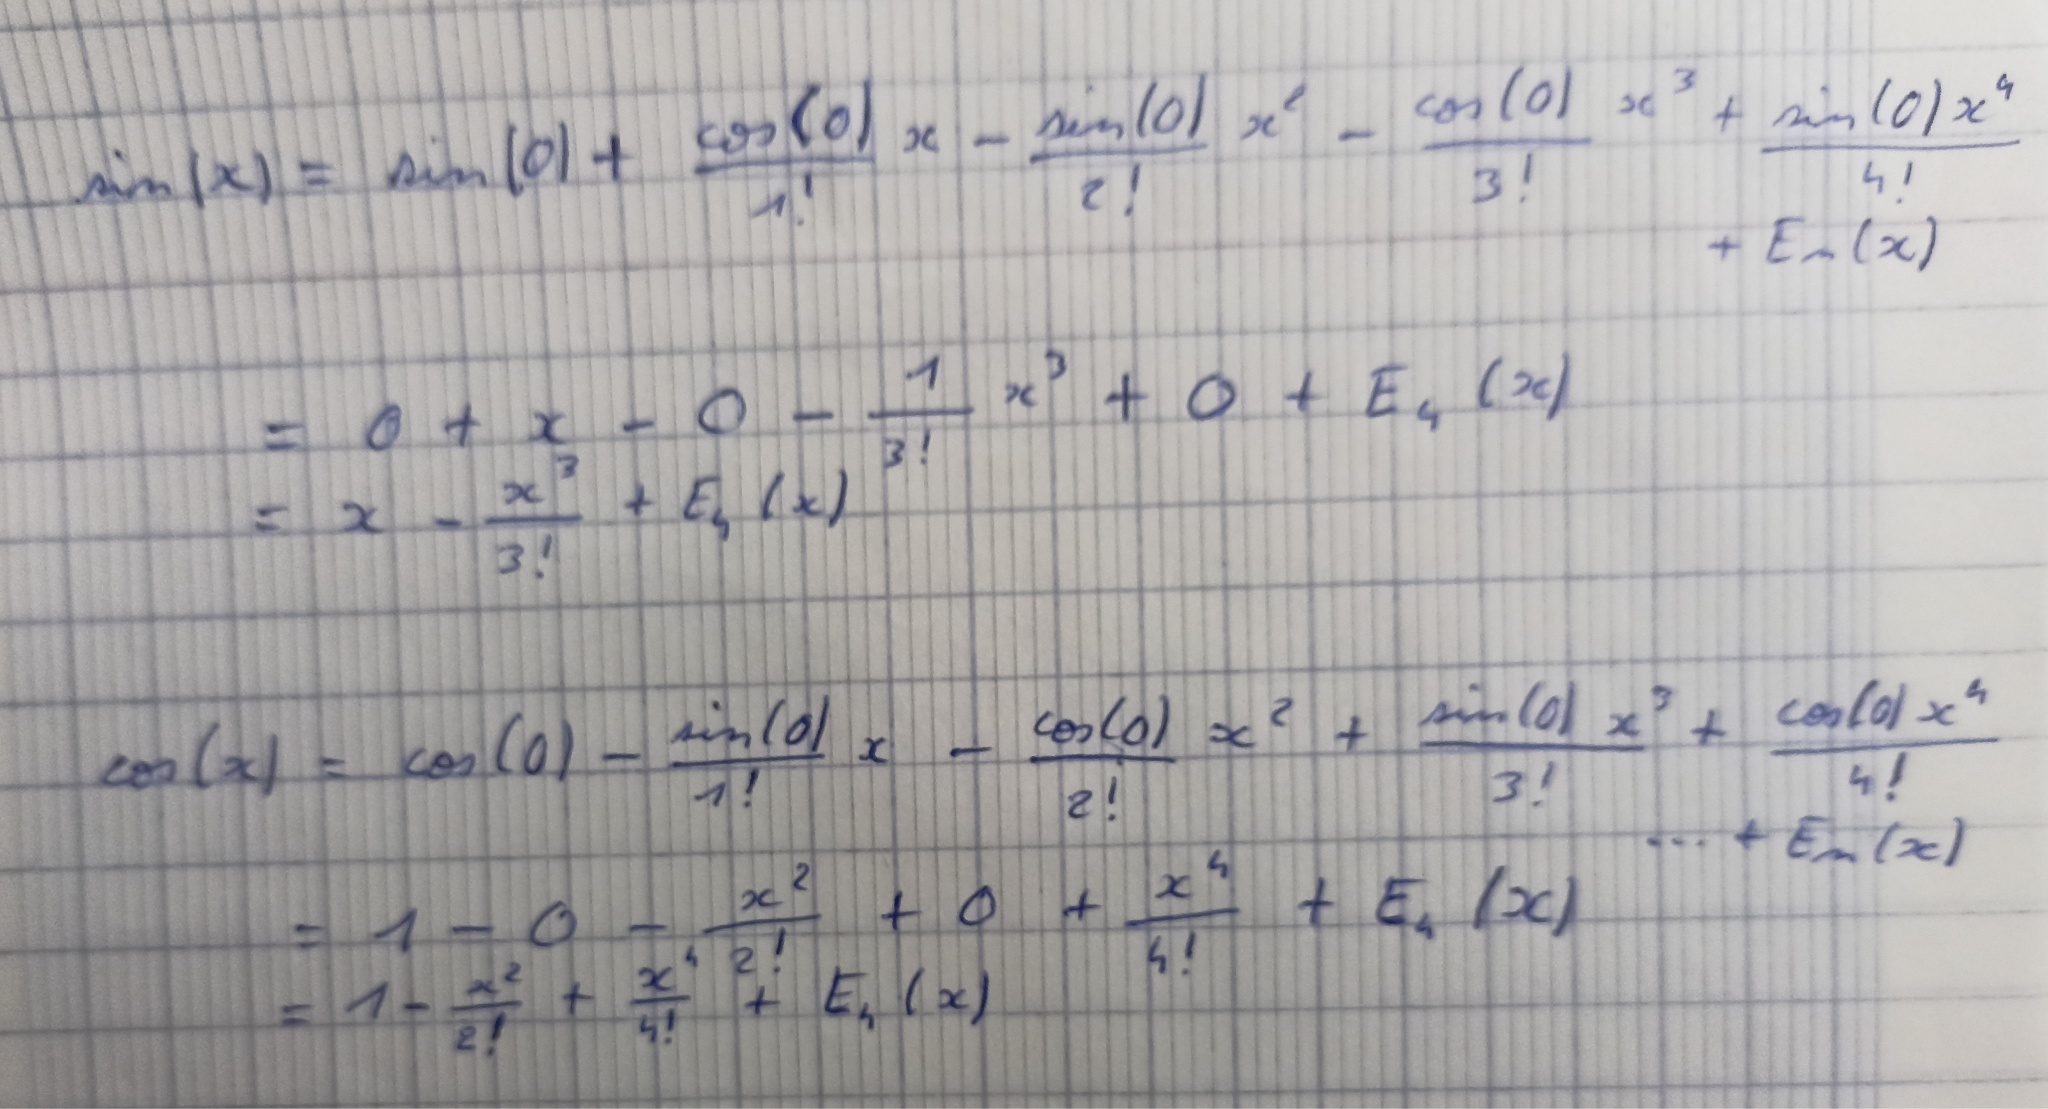 sin(x) = sin(0) + cos(0)/1! x - sin(0)/2! x² - cos(0)/3! x³ + sin(0)x⁴/4!
+ En(x)
= 0 + x - 0 - 1/3! x³ + 0 + E₄(x)
= x - x³/3! + E₄(x)
cos(x) = cos(0) - sin(0)/1! x - cos(0)/2! x² + sin(0)x³/3! + cos(0)x⁴/4!
... + En(x)
= 1 - 0 - x²/2! + 0 + x⁴/4! + E₄(x)
= 1 - x²/2! + x⁴/4! + E₄(x)